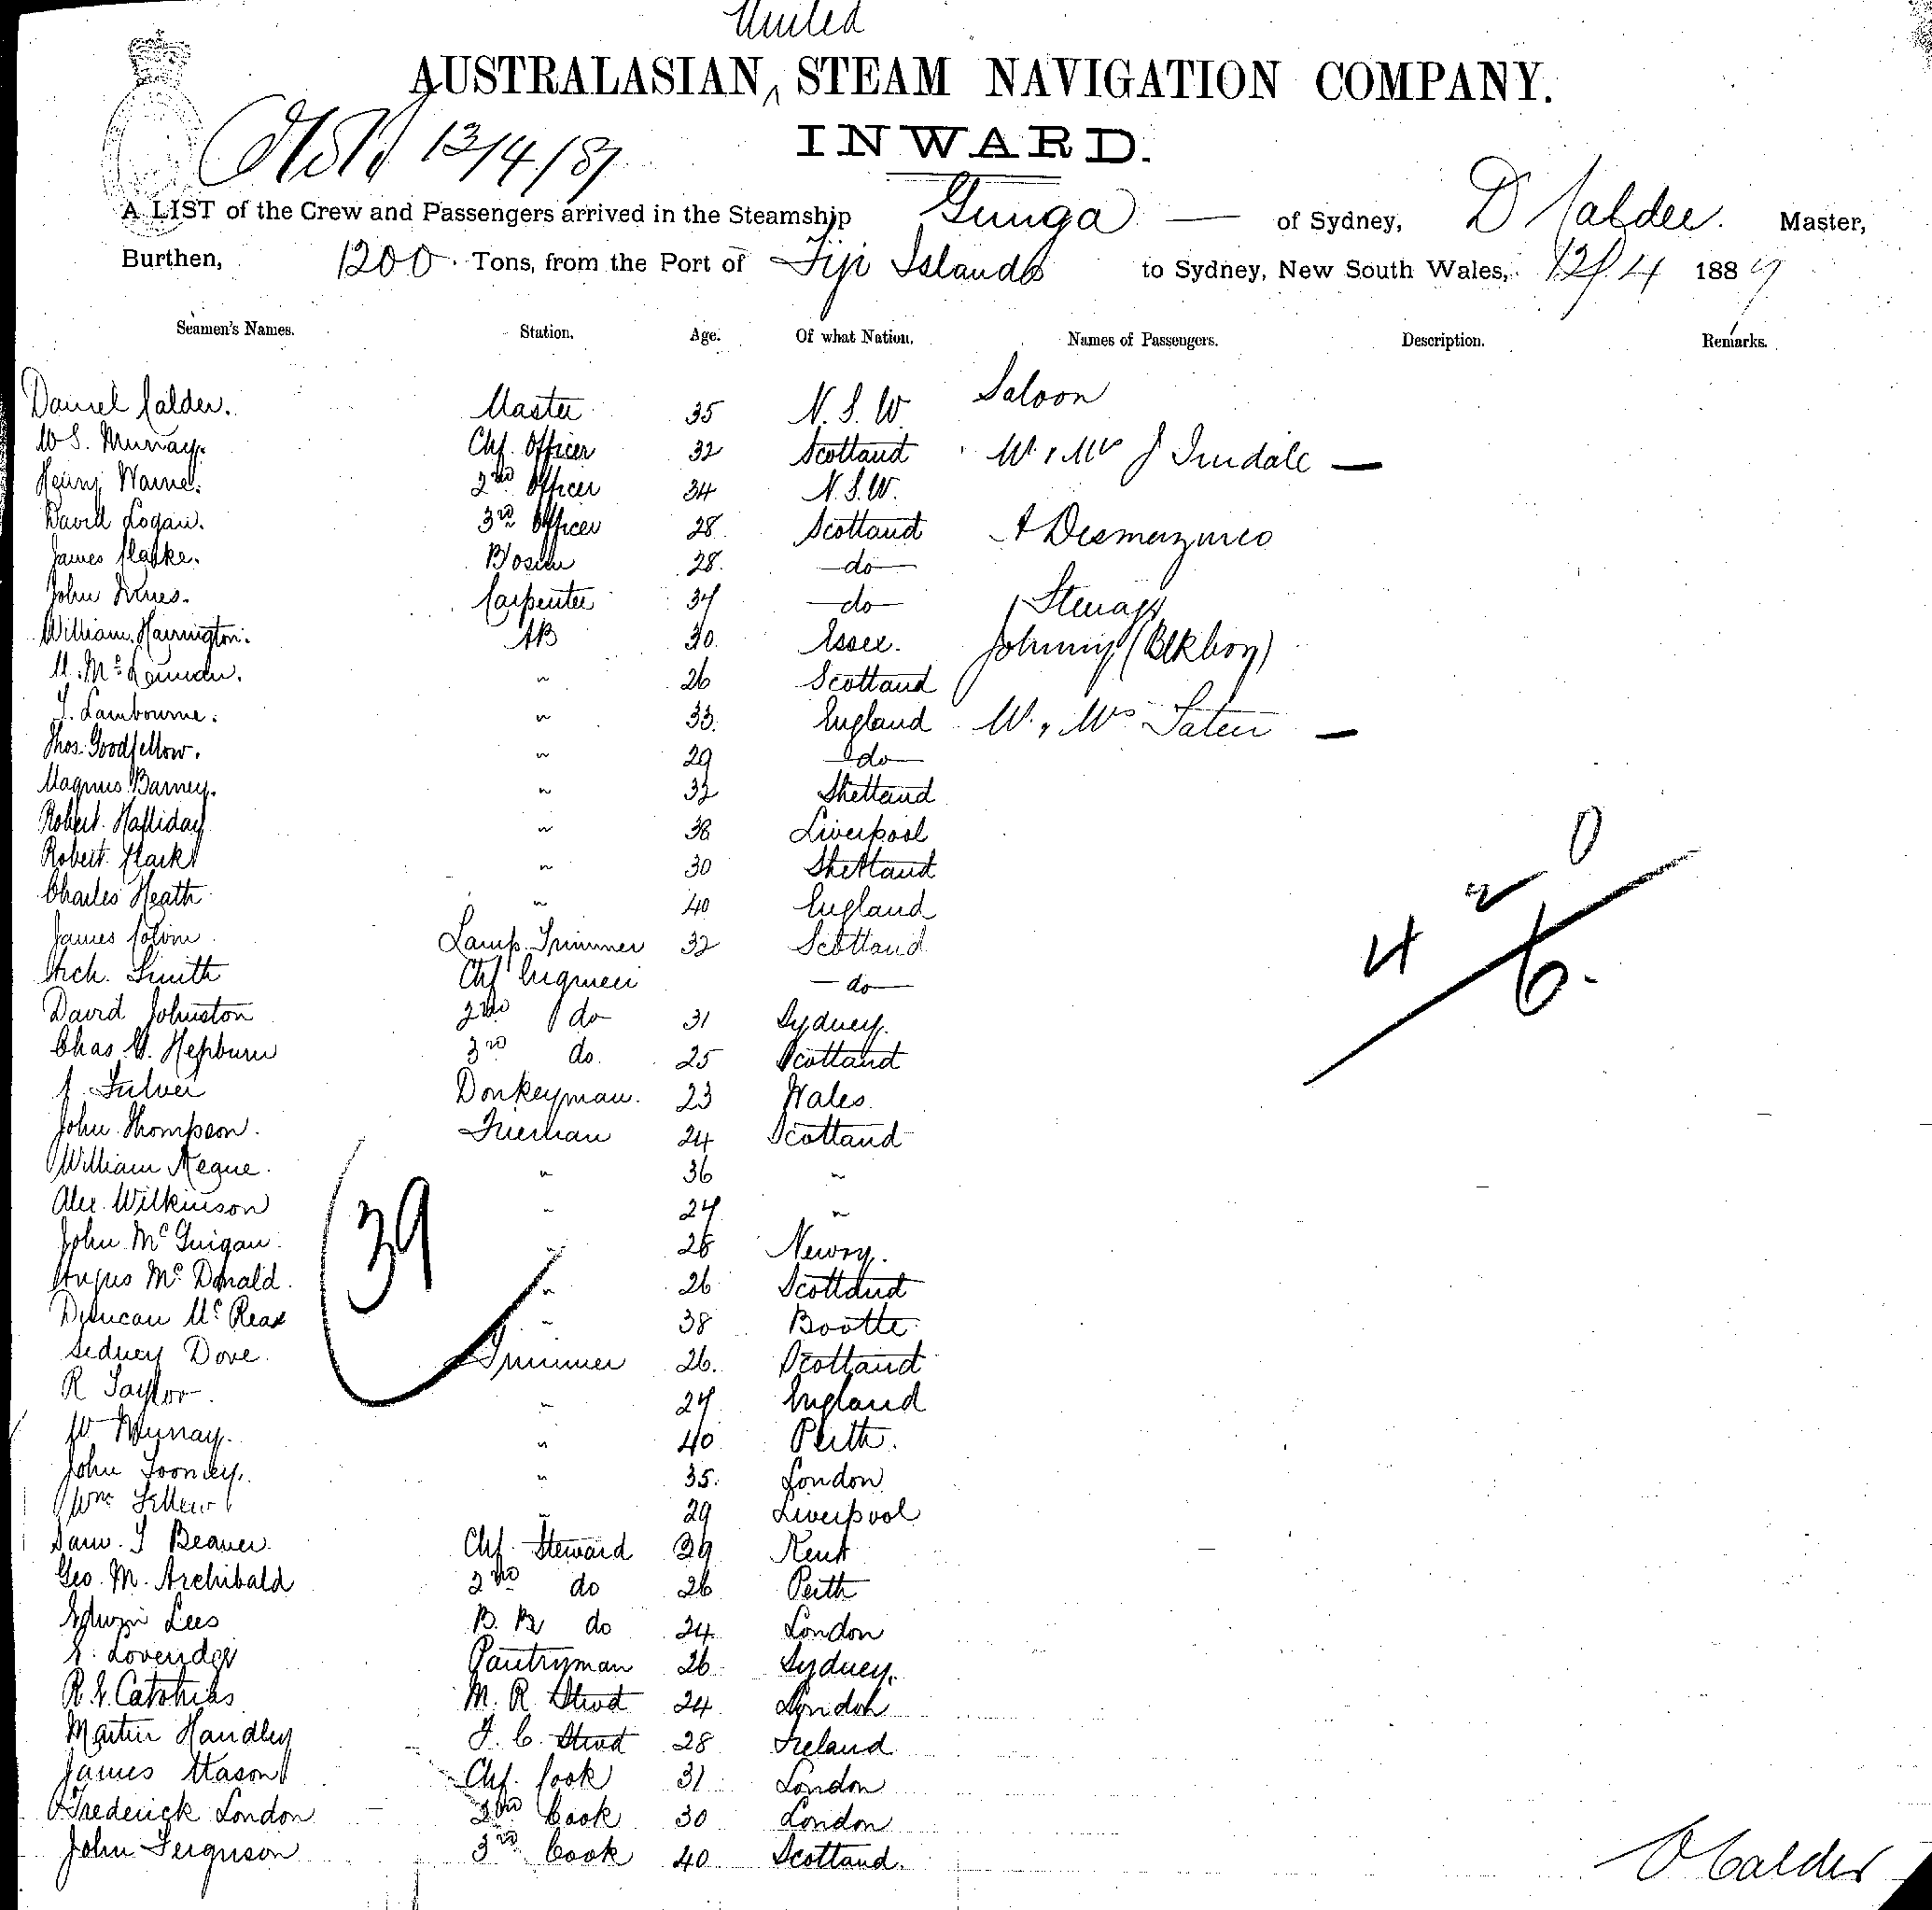 United
AUSTRALASIAN ^ STEAM NAVIGATION COMPANY.
13/4/87
INWARD.
A LIST of the Crew and Passengers arrived in the Steamship Gunga — of Sydney, D Calder. Master,
Burthen, 1200. Tons, from the Port of Fiji Islands to Sydney, New South Wales, 12/4 1887
Seamen's Names. Station. Age. Of what Nation. Names of Passengers. Description. Remarks.
Daniel Calder. Master 35 N. S. W. Saloon
W S. Murray. Chf. Officer 32 Scotland Mr & Mrs J Tindale —
Henry Warne. 2nd Officer 34 N. S. W.
David Logan. 3rd Officer 28. Scotland A Desmazures
James Clarke. Bosun 28. do
John Innes. Carpenter 34 do Steerage
William Harrington. AB 30. Essex. Johnny (Blk boy)
M. McLennan. " 26 Scotland
T. Lambourne. " 33. England Mr & Mrs —
Thos. Goodfellow. " 29 do
Magnus Barney. " 32 Shetland
Robert Halliday " 38 Liverpool
Robert Clark " 30 Shetland
Charles Heath " 40 England
James Colvin Lamp Trimmer 32 Scotland
4 2 0
6.
Arch. Smith Chf Engineer do
David Johnston 2nd do 31 Sydney.
Chas. G. Hepburn 3rd do. 25 Scotland
J. Donkeyman. 23 Wales.
John Thompson. Fireman 24 Scotland
William Neque. " 36 "
Alex Wilkinson " 24 "
John McGuigan. " 28 Newry.
39
Angus McDonald. " 26 Scotland
Duncan McRea " 38 Bootle
Sedney Dove. Trimmer 26. Scotland
R Taylor. " 24 England
W Murray. " 40 Perth.
John Toomey. " 35. London
Wm " 29 Liverpool
Sam. J Beaver. Chf. Steward 39 Kent
Geo. M. Archibald 2nd do 26 Perth
Edwin Lees B. R do 24 London
Loveridge Pantryman 26 Sydney.
R. M. R. Stwd 24 London
Martin Handley F. C. Stwd 28 Ireland
James Mason Chf. Cook 31 London
Frederick London 2nd Cook 30 London
John Ferguson 3rd Cook 40 Scotland.
D Calder